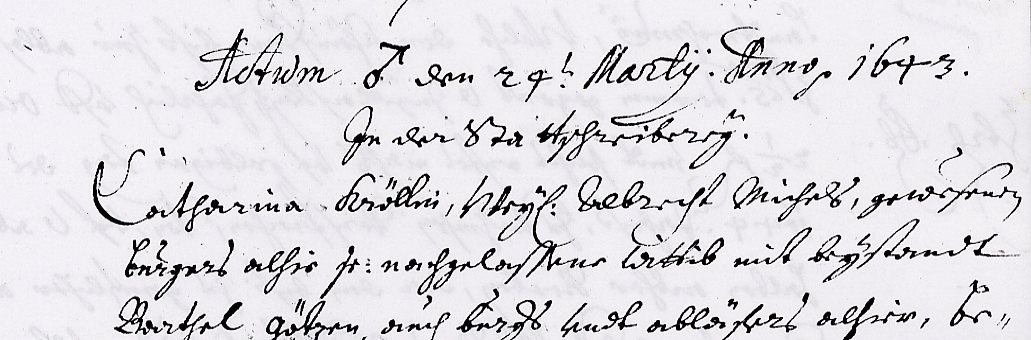 Actum ♂ den 24t Martij. Anno, 1643.
In der Stattschreiberey.
Catharina Kröllin, Weyl: Albrecht Michels, gewesenen
burgers alhie se: nachgelassene wittib mit beystandt
Barthel Götzen, auch burgs Vndt alhier, be=